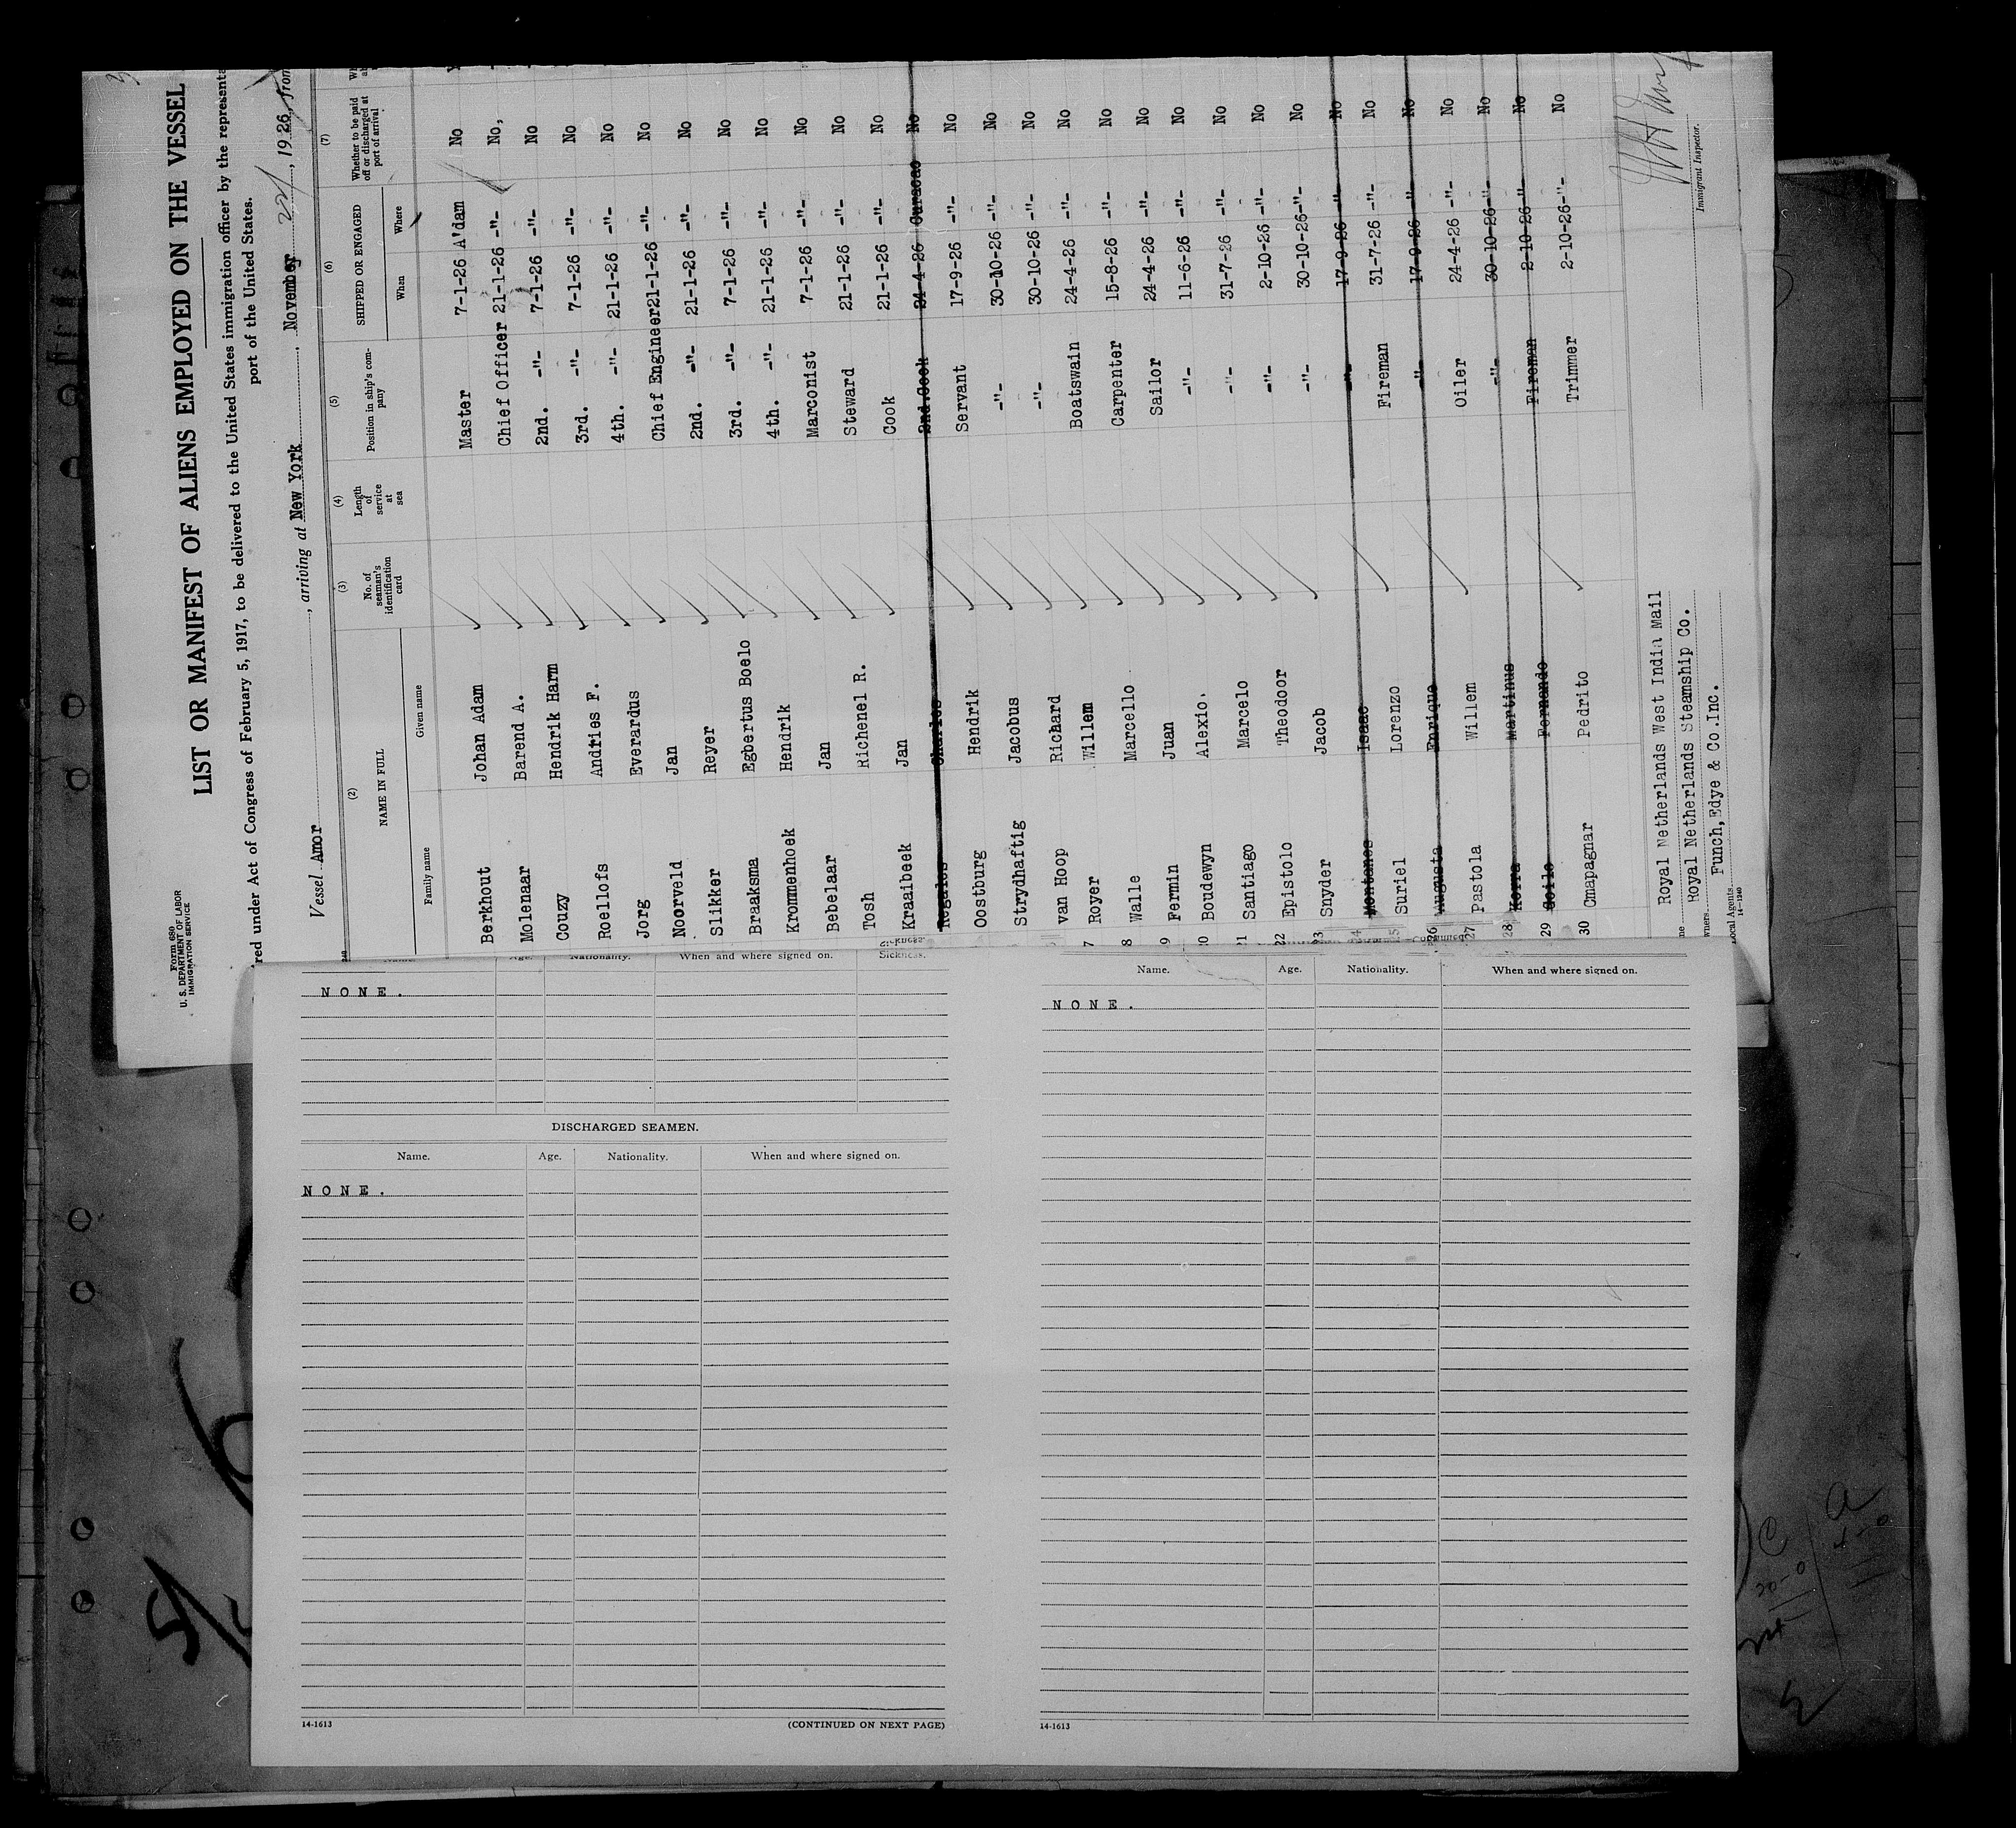 Form 680
U. S. DEPARTMENT OF LABOR
IMMIGRATION SERVICE
LIST OR MANIFEST OF ALIENS EMPLOYED ON THE VESSEL
red under Act of Congress of February 5, 1917, to be delivered to the United States immigration officer by the representa
port of the United States.
Vessel Amor, arriving at New York, November 22, 1926, from
(2) (3) (4) (5) (6) (7)
NAME IN FULL No. of seaman's identification card Length of service at sea Position in ship's company SHIPPED OR ENGAGED Whether to be paid off or discharged at port of arrival
Family name Given name When Where
Berkhout Johan Adam Master 7-1-26 A'dam No
Molenaar Barend A. Chief Officer 21-1-26 -"- No,
Couzy Hendrik Harm 2nd. -"- 7-1-26 -"- No
Roellofs Andries F. 3rd. -"- 7-1-26 -"- No
Jorg Everardus 4th. -"- 21-1-26 -"- No
Noorveld Jan Chief Engineer 21-1-26 -"- No
Slikker Reyer 2nd. -"- 21-1-26 -"- No
Braaksma Egbertus Boelo 3rd. -"- 7-1-26 -"- No
Krommenhoek Hendrik 4th. -"- 21-1-26 -"- No
Bebelaar Jan Marconist 7-1-26 -"- No
Tosh Richenel R. Steward 21-1-26 -"- No
Kraaibeek Jan Cook 21-1-26 -"- No
Regales Charles 2nd.Cook 24-4-26 Curacao No
Oostburg Hendrik Servant 17-9-26 -"- No
Strydhaftig Jacobus -"- 30-10-26 -"- No
van Hoop Richard -"- 30-10-26 -"- No
7 Royer Willem Boatswain 24-4-26 -"- No
8 Walle Marcello Carpenter 15-8-26 -"- No
9 Fermin Juan Sailor 24-4-26 -"- No
20 Boudewyn Alexio. -"- 11-6-26 -"- No
21 Santiago Marcelo -"- 31-7-26 -"- No
22 Epistolo Theodoor -"- 2-10-26 -"- No
23 Snyder Jacob -"- 30-10-26 -"- No
24 Montanes Isaac -"- 17-9-26 -"- No
25 Suriel Lorenzo Fireman 31-7-26 -"- No
26 Augusta Enrique -"- 17-9-26 -"- No
27 Pastola Willem Oiler 24-4-26 -"- No
28 Martinus -"- 30-10-26 -"- No
29 Fernando Fireman 2-10-26 -"- No
30 Cmapagnar Pedrito Trimmer 2-10-26 -"- No
Royal Netherlands West India Mail
Royal Netherlands Steamship Co.
Funch,Edye & Co.Inc.
Owners.
Local Agents.
14-1240
Immigrant Inspector.
Name. Age. Nationality. When and where signed on. Sickness.
NONE.
DISCHARGED SEAMEN.
Name. Age. Nationality. When and where signed on.
NONE.
14-1613 (CONTINUED ON NEXT PAGE)
Name. Age. Nationality. When and where signed on.
NONE.
14-1613